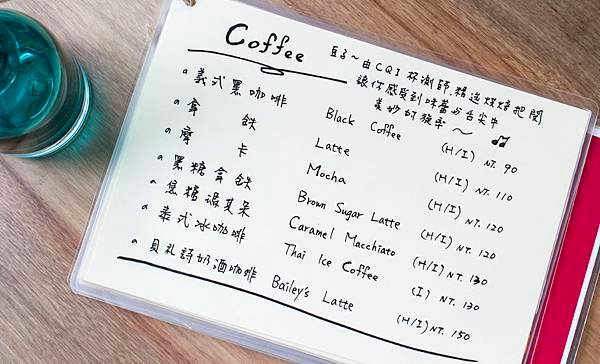 Coffee
豆子～由CQI杯測師.精選烘焙把関
讓你感受到味蕾分台尖中
美妙的旋率～
義式黑咖啡 Black Coffee (H/I) NT. 90
拿鉄 Latte (H/I) NT. 110
摩卡 Mocha (H/I) NT. 120
黑糖拿鉄 Brown Sugar Latte (H/I) NT. 120
焦糖瑪其朵 Caramel Macchiato (H/I) NT. 130
泰式冰咖啡 Thai Ice Coffee (I) NT. 130
貝礼詩奶酒咖啡 Bailey's Latte (H/I) NT. 150